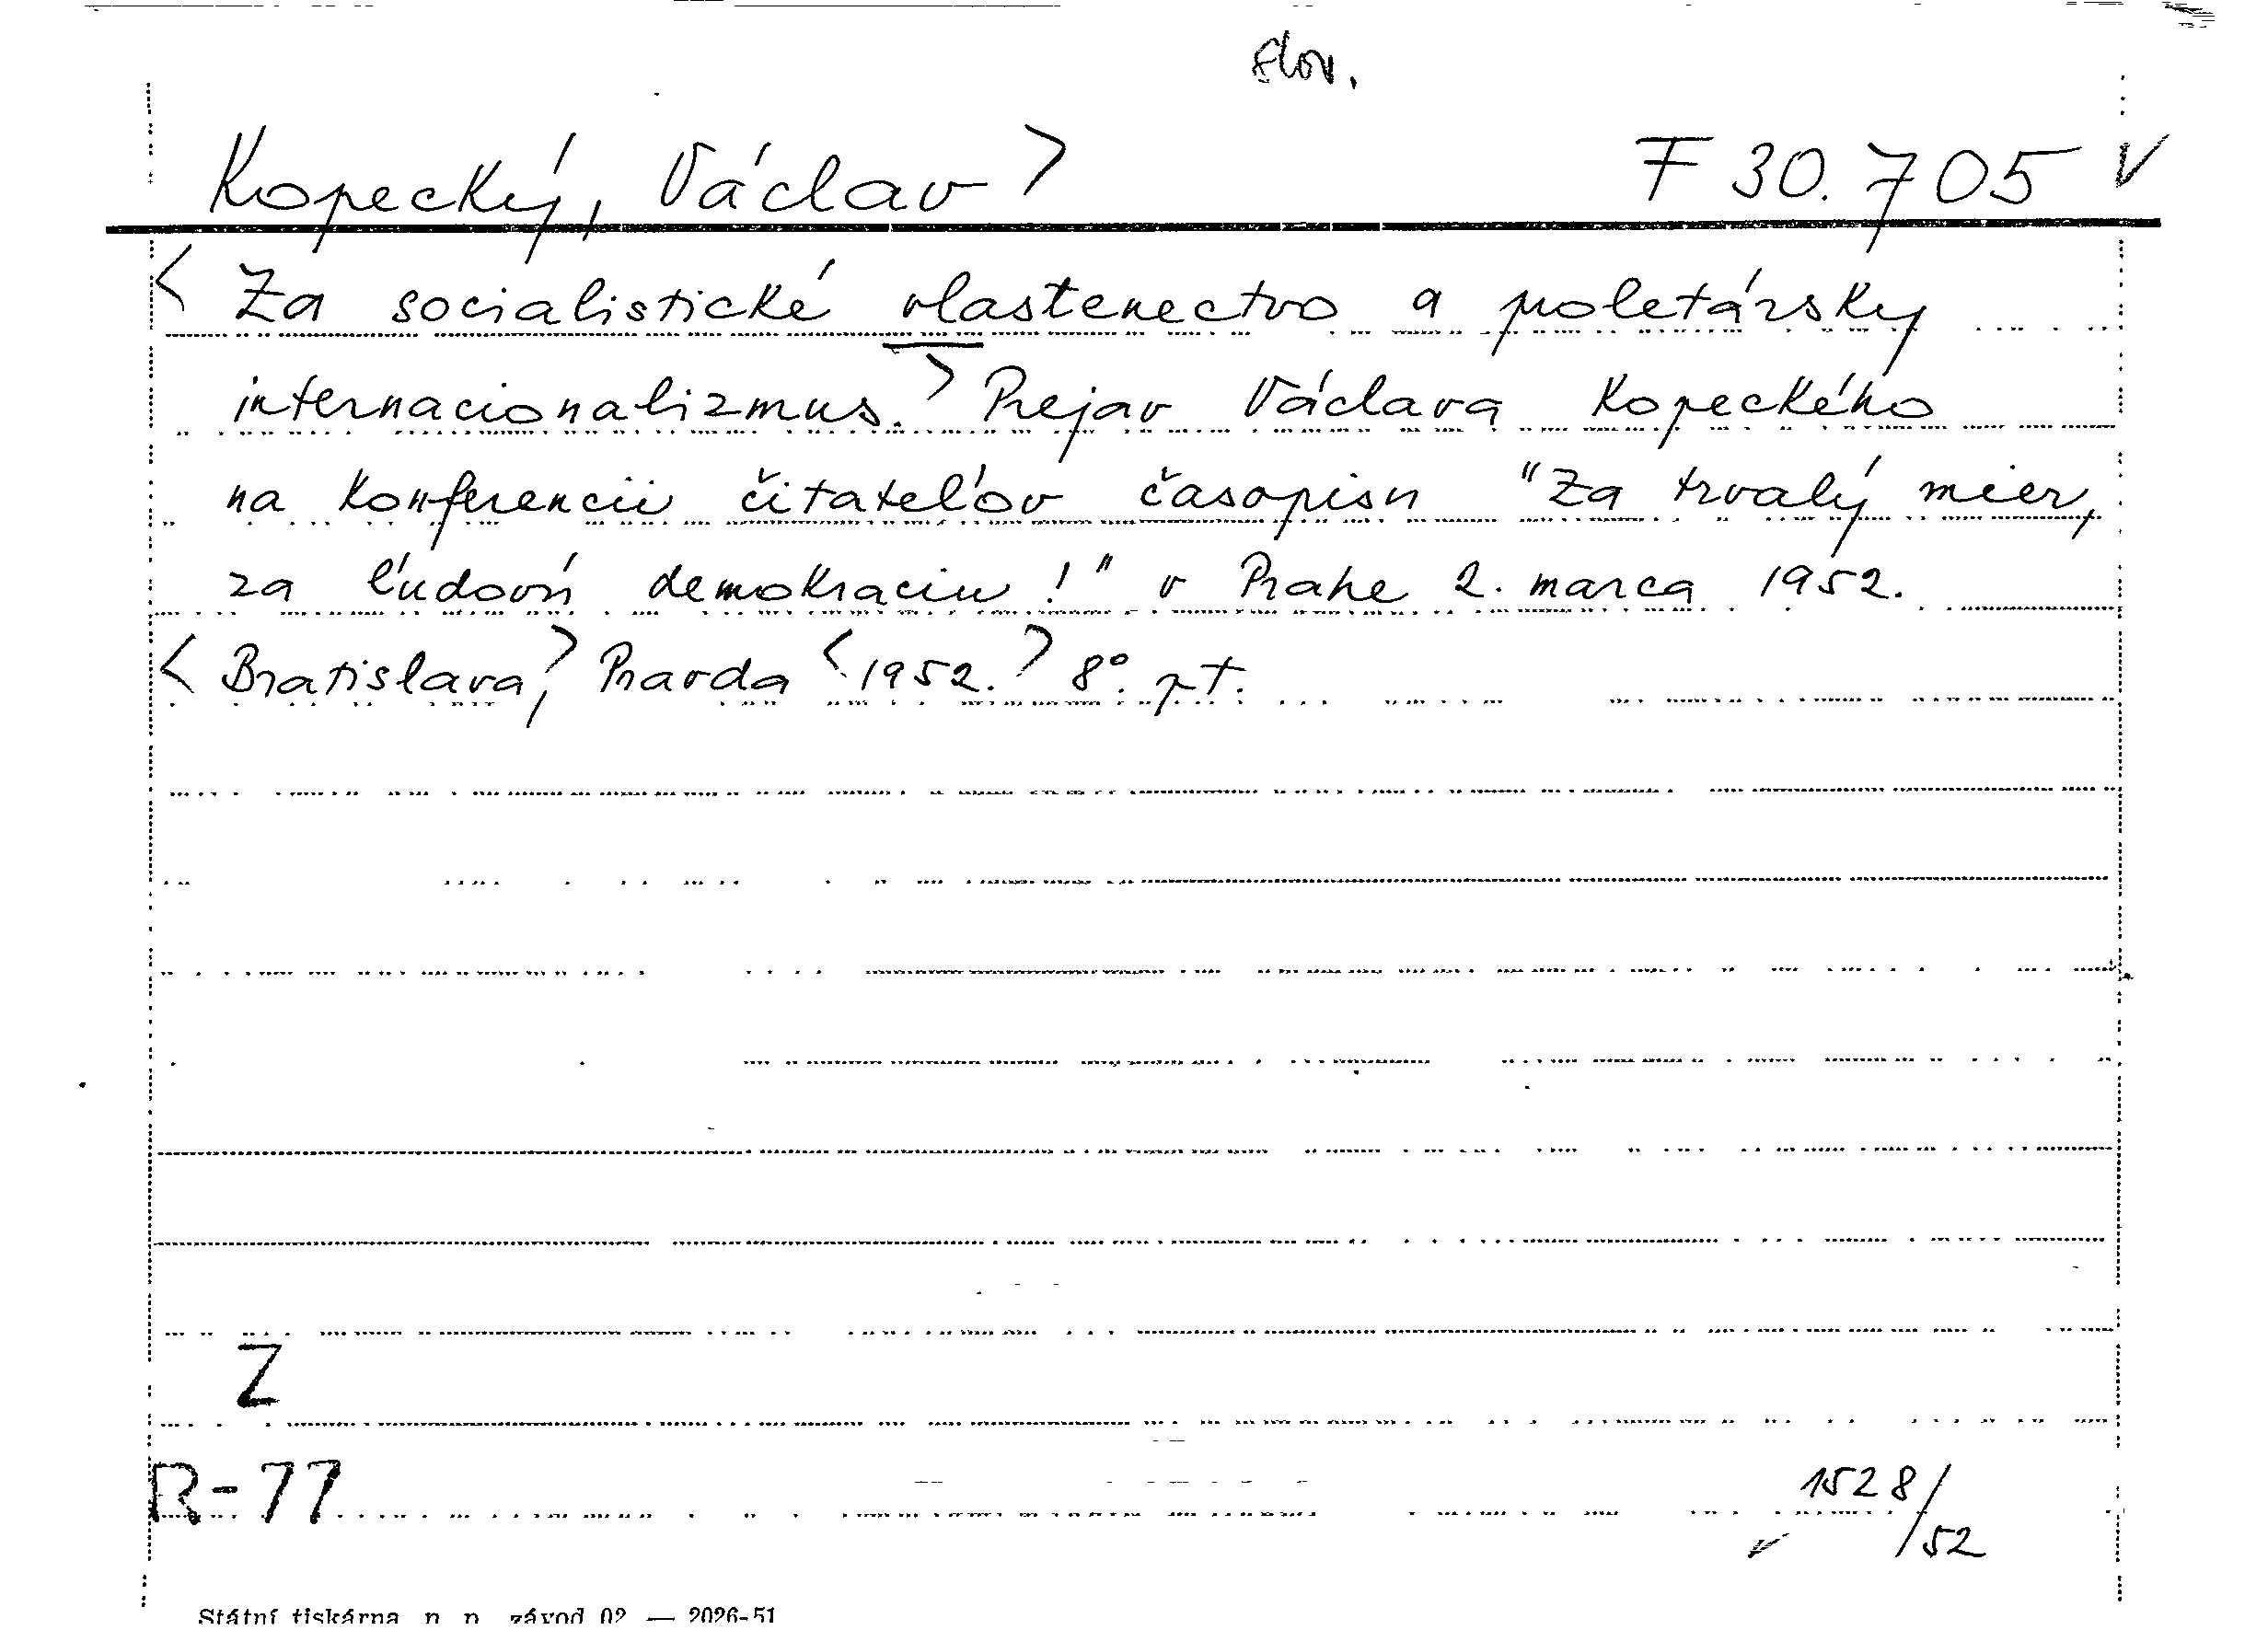 slov.
Kopecký, Václav > F 30.705 V
< Za socialistické vlastenectvo a proletársky
internacionalizmus. > Prejav Václava Kopeckého
na konferencii čitateľov časopisu "Za trvalý mier,
za ľudovú demokraciu!" v Prahe 2. marca 1952.
< Bratislava, > Pravda < 1952. > 8°. pt.
Z
R-77
1528/
/52
Státní tiskárna n. p. závod 02 — 2026-51